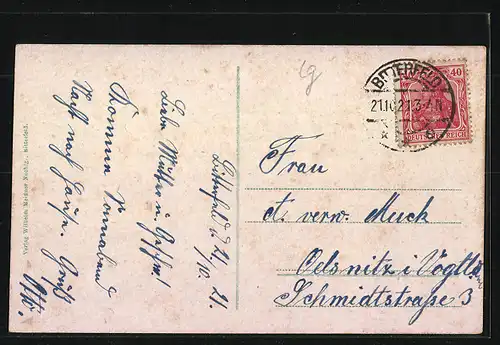 Bitterfeld d. 21/10. 21.
Liebe Mutter u. Geschw.!
Komme Sonnabend
Nacht nach Hause. Gruß
Verlag Wilhelm Meissner Nachfg., Bitterfeld.
BITTERFELD
21.10.21.3-4N
40
DEUTSCHES REICH
Frau
A. verw. Muck
Oelsnitz i. Vogtld.
Schmidtstraße 3